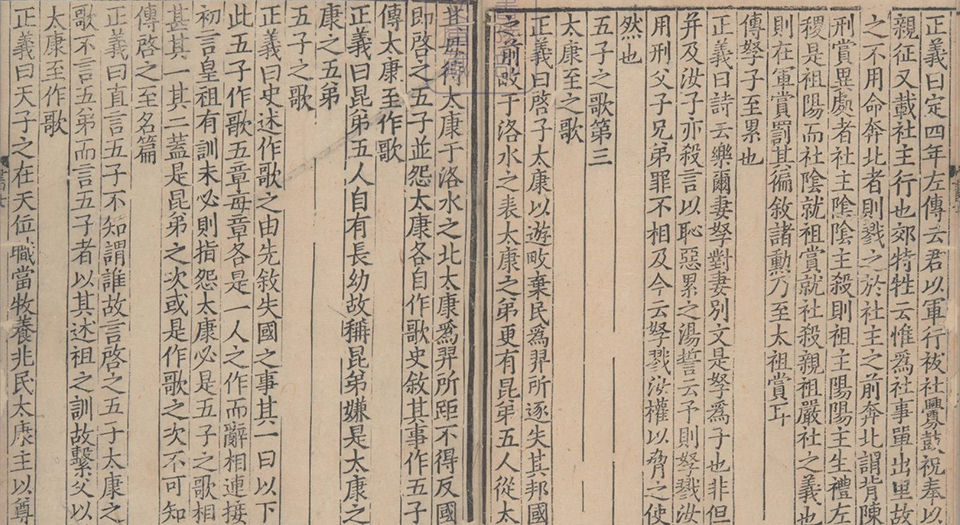 正義曰定四年左傳云君以軍行祓社釁鼓祝奉以
親征又載社主行也郊特牲云惟爲社事單出里故
之不用命奔北者則戮之於社主之前奔北謂背陳
刑賞異處者社主陰陰主殺則祖主陽陽主生禮左
稷是祖陽而社陰就祖賞就社殺親祖嚴社之義也
則在軍賞罰其徧敘諸勳乃至太祖賞耳
傳孥子至累也
正義曰詩云樂爾妻孥對妻別文是孥爲子也非但
并及汝子亦殺言以恥惡累之湯誓云予則孥戮汝
用刑父子兄弟罪不相及今云孥戮汝權以脅之使
然也
五子之歌第三
太康至之歌
正義曰啓子太康以遊畋棄民爲羿所逐失其邦國
之前畋于洛水之表太康之弟更有昆弟五人從太
其母待太康于洛水之北太康爲羿所距不得反國
即啓之五子並怨太康各自作歌史敘其事作五子
傳太康至作歌
正義曰昆弟五人自有長幼故稱昆弟嫌是太康之
康之五弟
五子之歌
正義曰史述作歌之由先敘失國之事其一曰以下
此五子作歌五章每章各是一人之作而辭相連接
初言皇祖有訓未必則指怨太康必是五子之歌相
其其一其二蓋是昆弟之次或是作歌之次不可知
傳啓之至名篇
正義曰直言五子不知謂誰故言啓之五子太康之
歌不言五弟而言五子者以其述祖之訓故繫父以
太康至作歌
正義曰天子之在天位職當牧養兆民太康主以尊